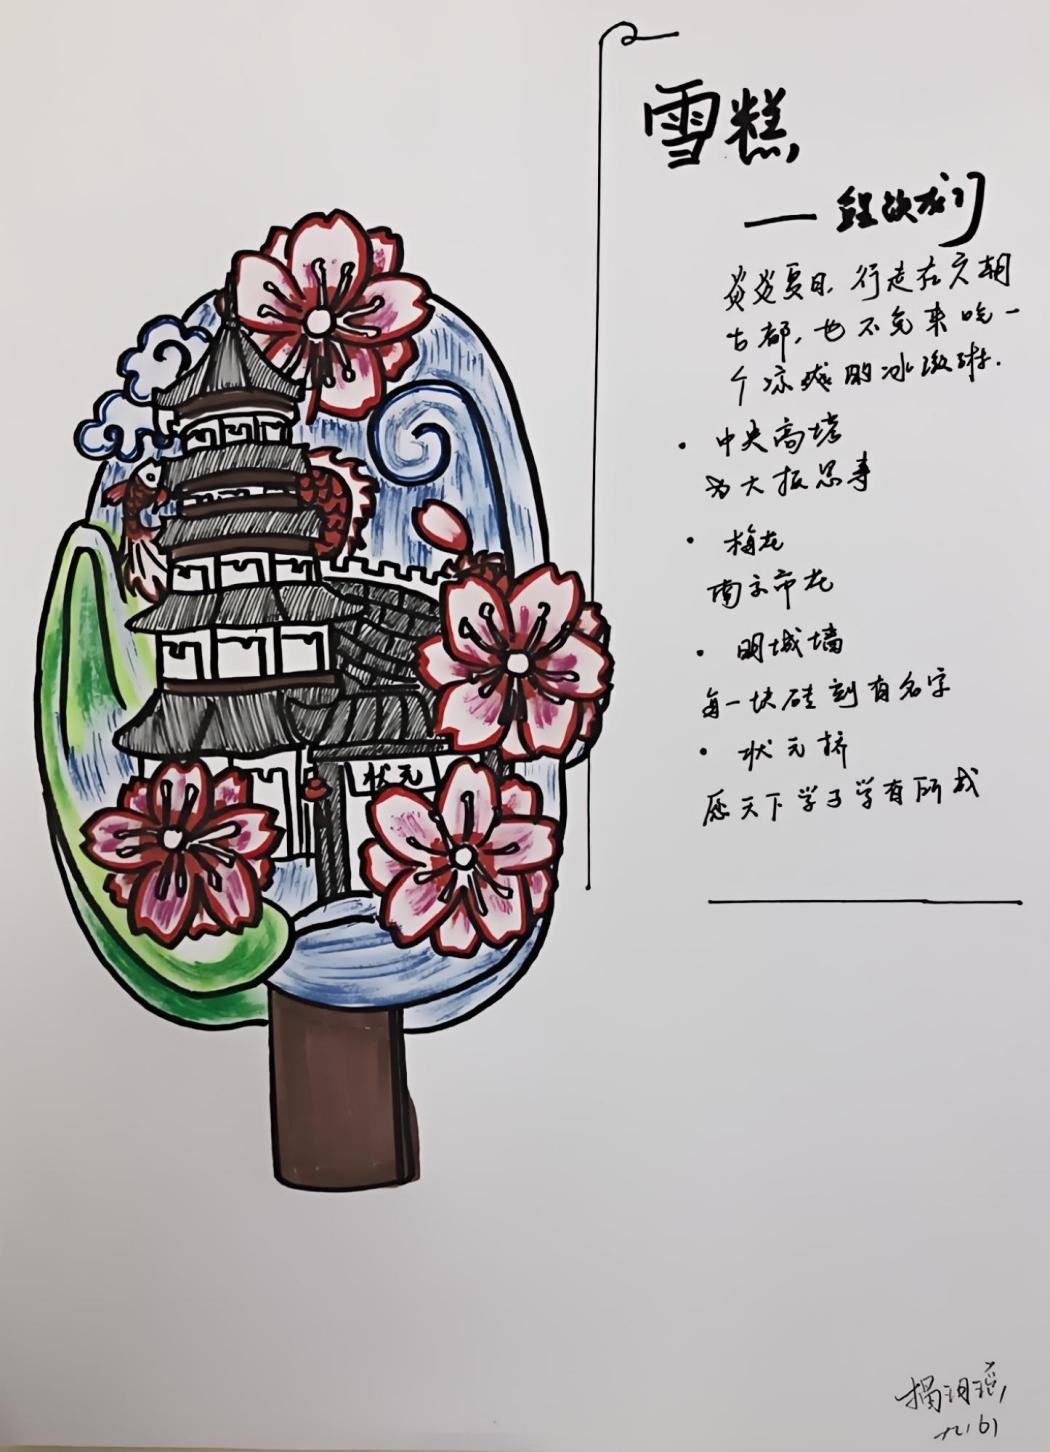 雪糕
—— 鲤跃龙门
炎炎夏日，行走在六朝
古都，也不免来吃一
个凉爽的冰激淋．
· 中央高塔
为大报恩寺
· 梅花
南京市花
· 明城墙
每一块砖刻有名字
· 状元桥
愿天下学子学有所成
状元